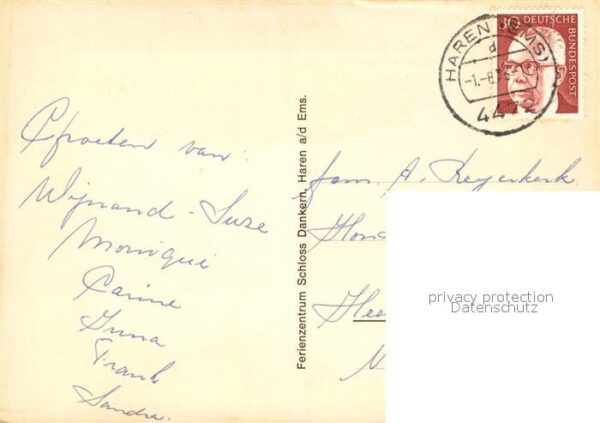 Groeten van:
Wijnand - Suze
Monique
Carine
Frank
Sandra.
Ferienzentrum Schloss Dankern, Haren a/d Ems.
HAREN (EMS)
d
4472
30 DEUTSCHE
BUNDESPOST
fam. A.
privacy protection
Datenschutz